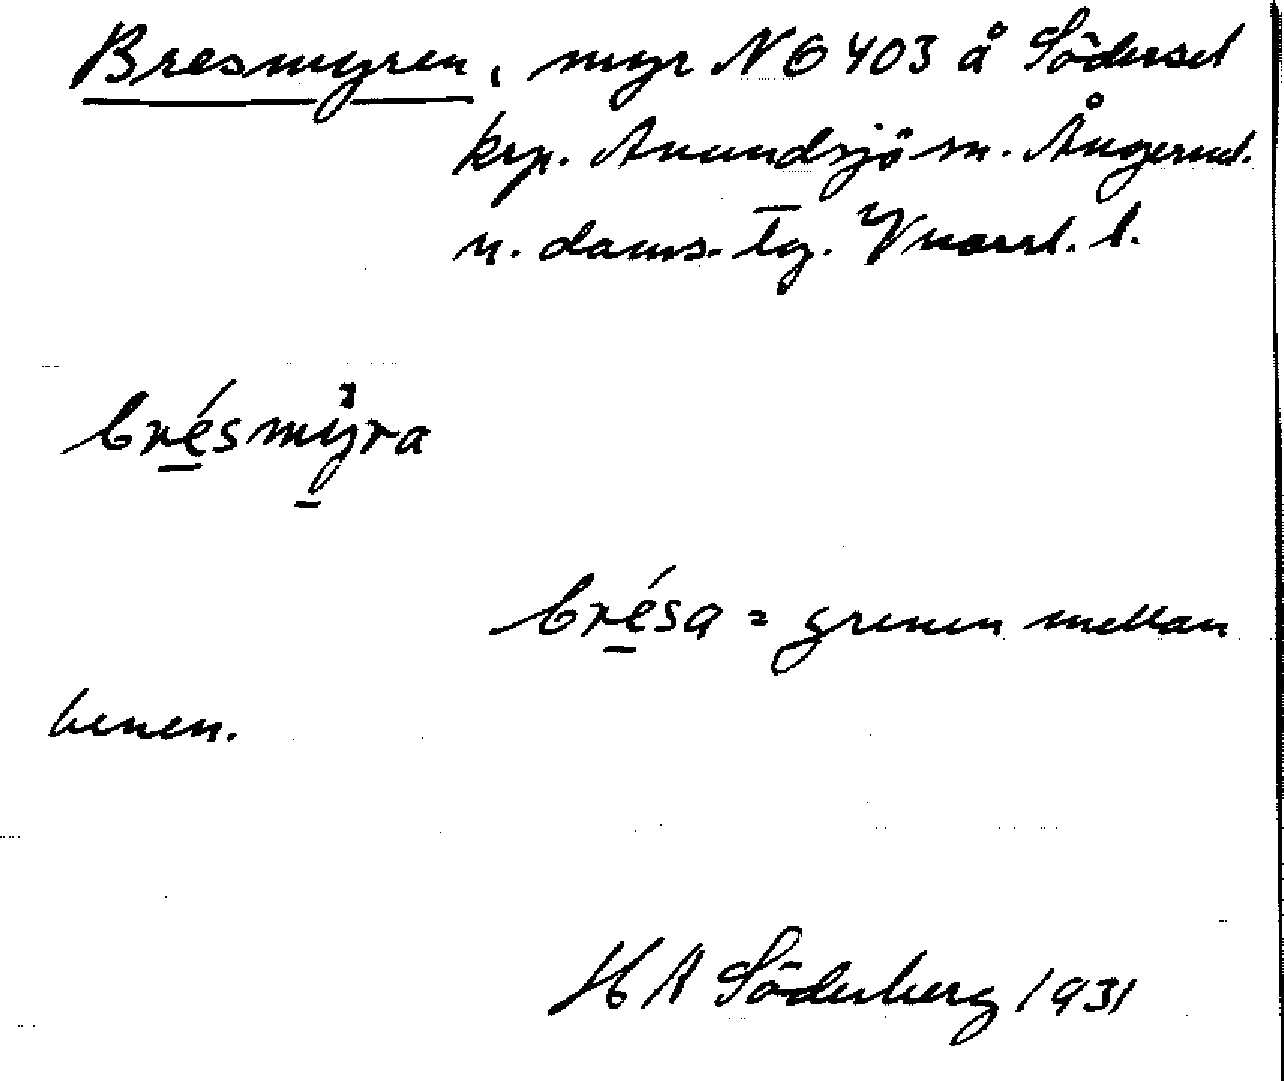 Bresmyren, myr N 6403 å Södersel
krp. Anundsjö sn. Ångerml.
n. doms. tg. Vnorrl. l.
brésmy̆ra
brésa = grenen mellan
benen.
H A Söderberg 1931